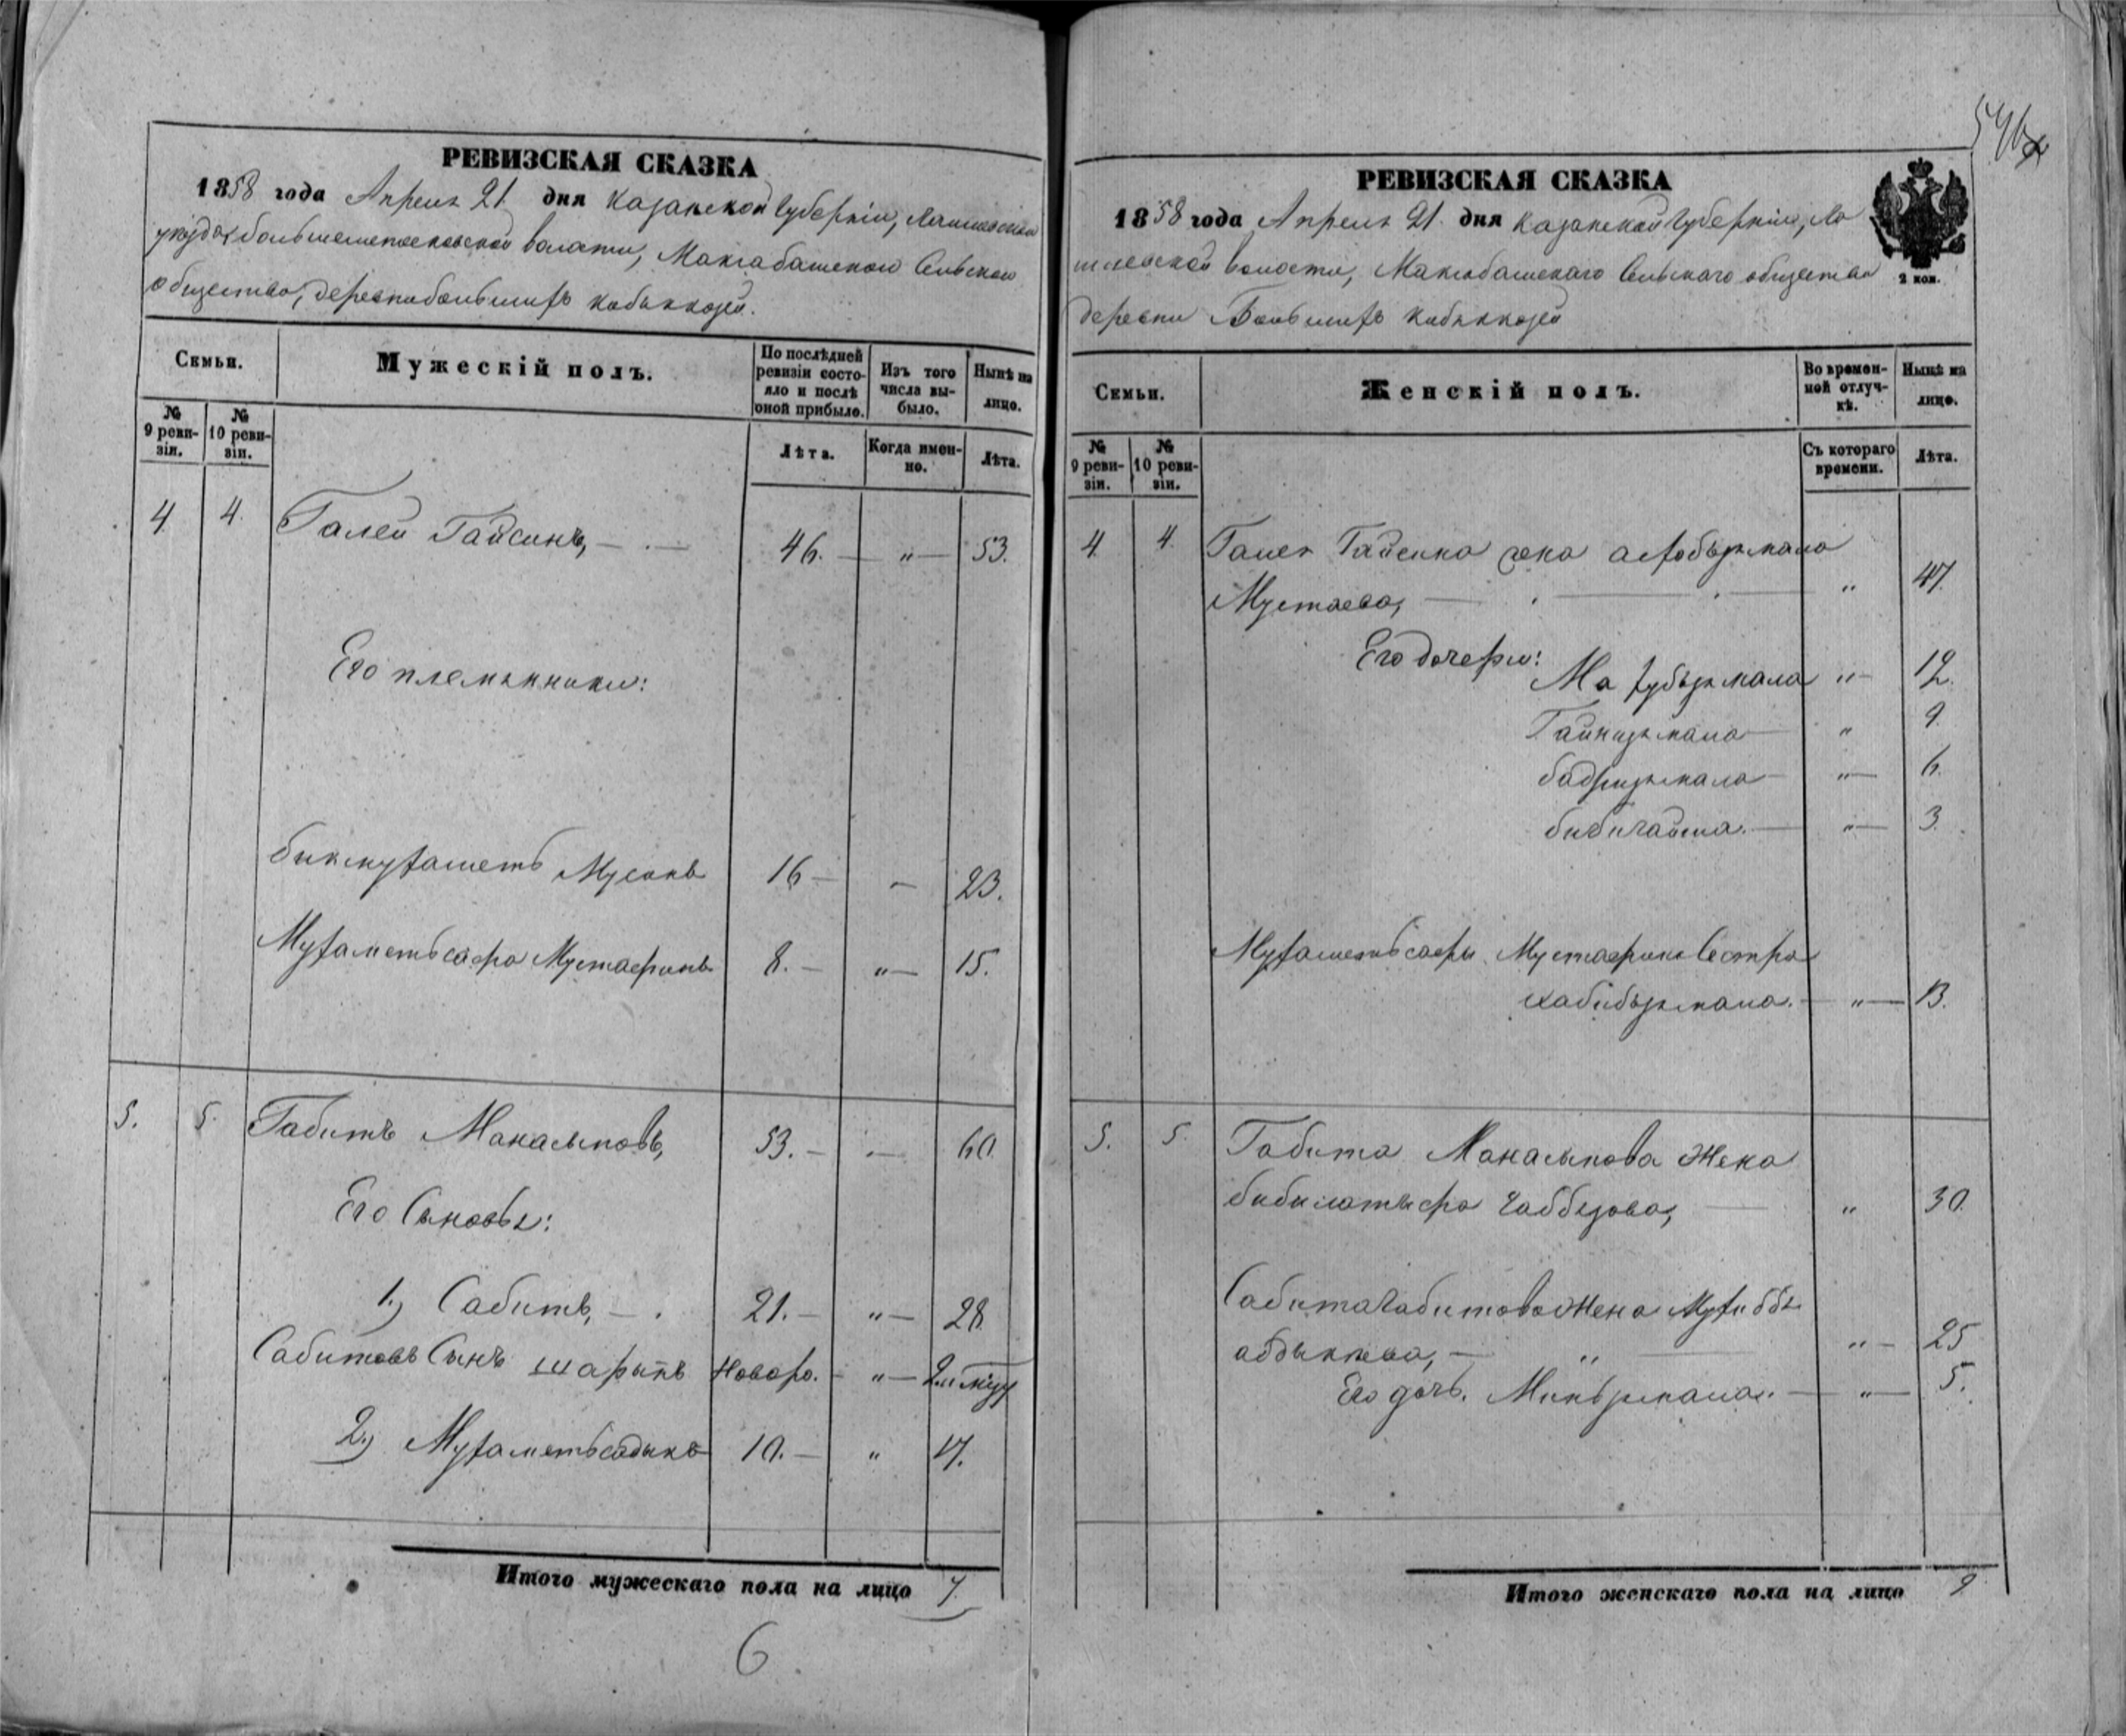 546
РЕВИЗСКАЯ СКАЗКА
1858 года Апреля 21 дня Казанской Губернiи, Лаишевскаго
уѣзда, волости, Максабашскаго Сельскаго
общества, деревни большихъ Кабыккозей.
Семьи.
Мужескiй полъ.
По послѣдней ревизiи состояло и послѣ оной прибыло.
Изъ того числа выбыло.
Нынѣ на лицо.
№ 9 ревизiи.
№ 10 ревизiи.
Лѣта.
Когда именно.
Лѣта.
4. 4. Галей Гайсинъ, — 46. — „ — 53.
Его племянники:
бикмухаметъ Мусинъ 16 — — 23.
Мухаметьсафа Мустафинъ 8. — „ — 15.
5. 5. Габитъ Манасыповъ, 53. — — 60.
Его Сыновья:
1.) Сабитъ, — 21. — „ — 28
Сабитовъ Сынъ шарыпъ Новоро. — „ —
2.) Мухаметьсадыкъ 10. — „ 17.
Итого мужескаго пола на лицо 7.
6
РЕВИЗСКАЯ СКАЗКА
1858 года Апреля 21 дня Казанской Губернiи,
волости, Максабашскаго Сельскаго общества
деревни Большихъ Кабыккозей
2 коп.
Семьи.
Женскiй полъ.
Во временной отлучкѣ.
Нынѣ на лицо.
№ 9 ревизiи.
№ 10 ревизiи.
Съ котораго времени.
Лѣта.
4. 4. Галея Гайсина жена
Мустаева, — „ 47.
Его дочери:
Махубзямала „ — 12.
Гайнизямала — „ 9.
бадризямала — „ — 6.
бибигайша. — „ — 3.
Мухаметьсафы Мустафина Сестра
хабибзямала. — „ — 13.
5. 5. Габита Манасыпова Жена
бибилатыфа Габбезова, — „ 30.
Сабита Габитова Жена
„ — 25
Его дочь. — „ — 5.
Итого женскаго пола на лицо 9